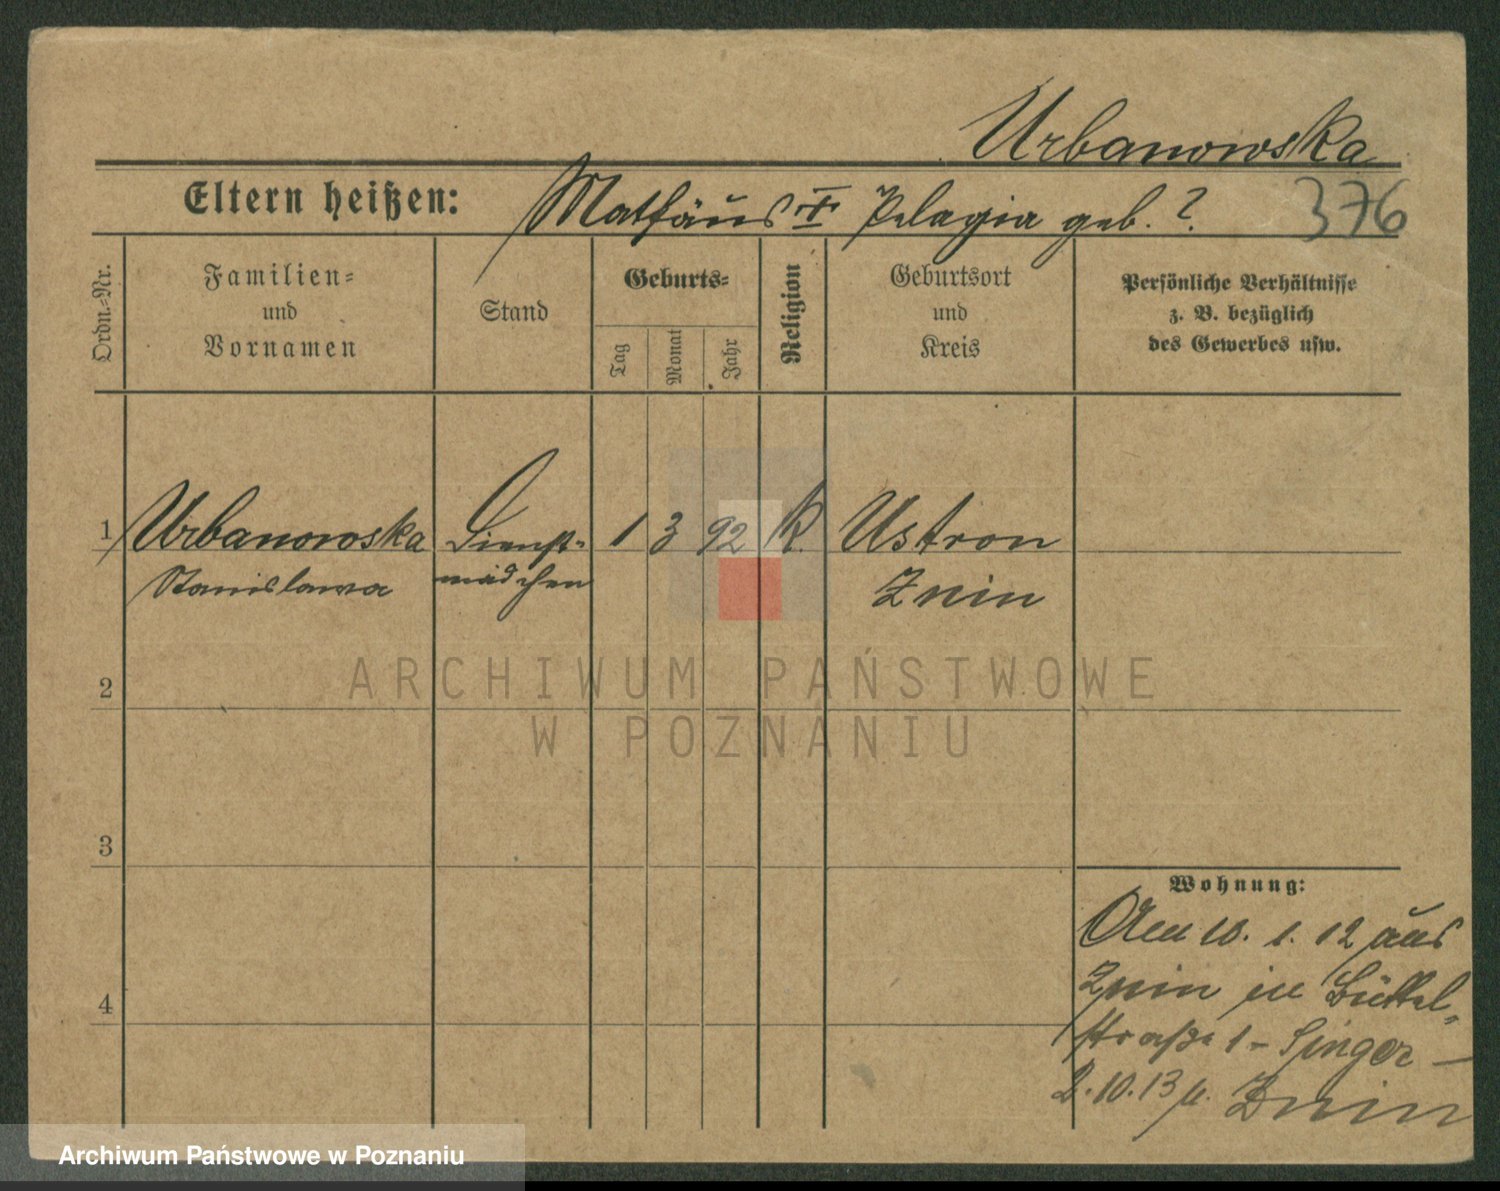 Urbanowska
Eltern heißen: Mathäus † Pelagia geb. ? 376
Ordn.-Nr.
Familien-
und
Vornamen
Stand
Geburts-
Tag
Monat
Jahr
Religion
Geburtsort
und
Kreis
Persönliche Verhältnisse
z. B. bezüglich
des Gewerbes usw.
1 Urbanowska Dienst- 1 3 92 k. Ustron
Stanislawa mädchen Znin
2
ARCHIWUM PAŃSTWOWE
W POZNANIU
3
Wohnung:
Am 10. 1. 12 aus
Znin in Büttel-
4
straße 1 - Singer -
2.10.13 n. Znin
Archiwum Państwowe w Poznaniu